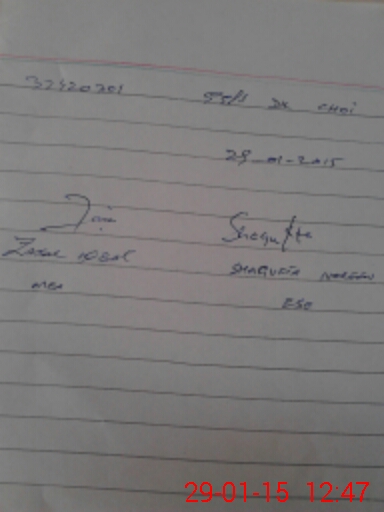 32420201 GG/S DK CHOI
29-01-2015
Shagufta
ZAFAR IQBAL SHAGUFTA NOREEN
MEA ESE
29-01-15 12:47